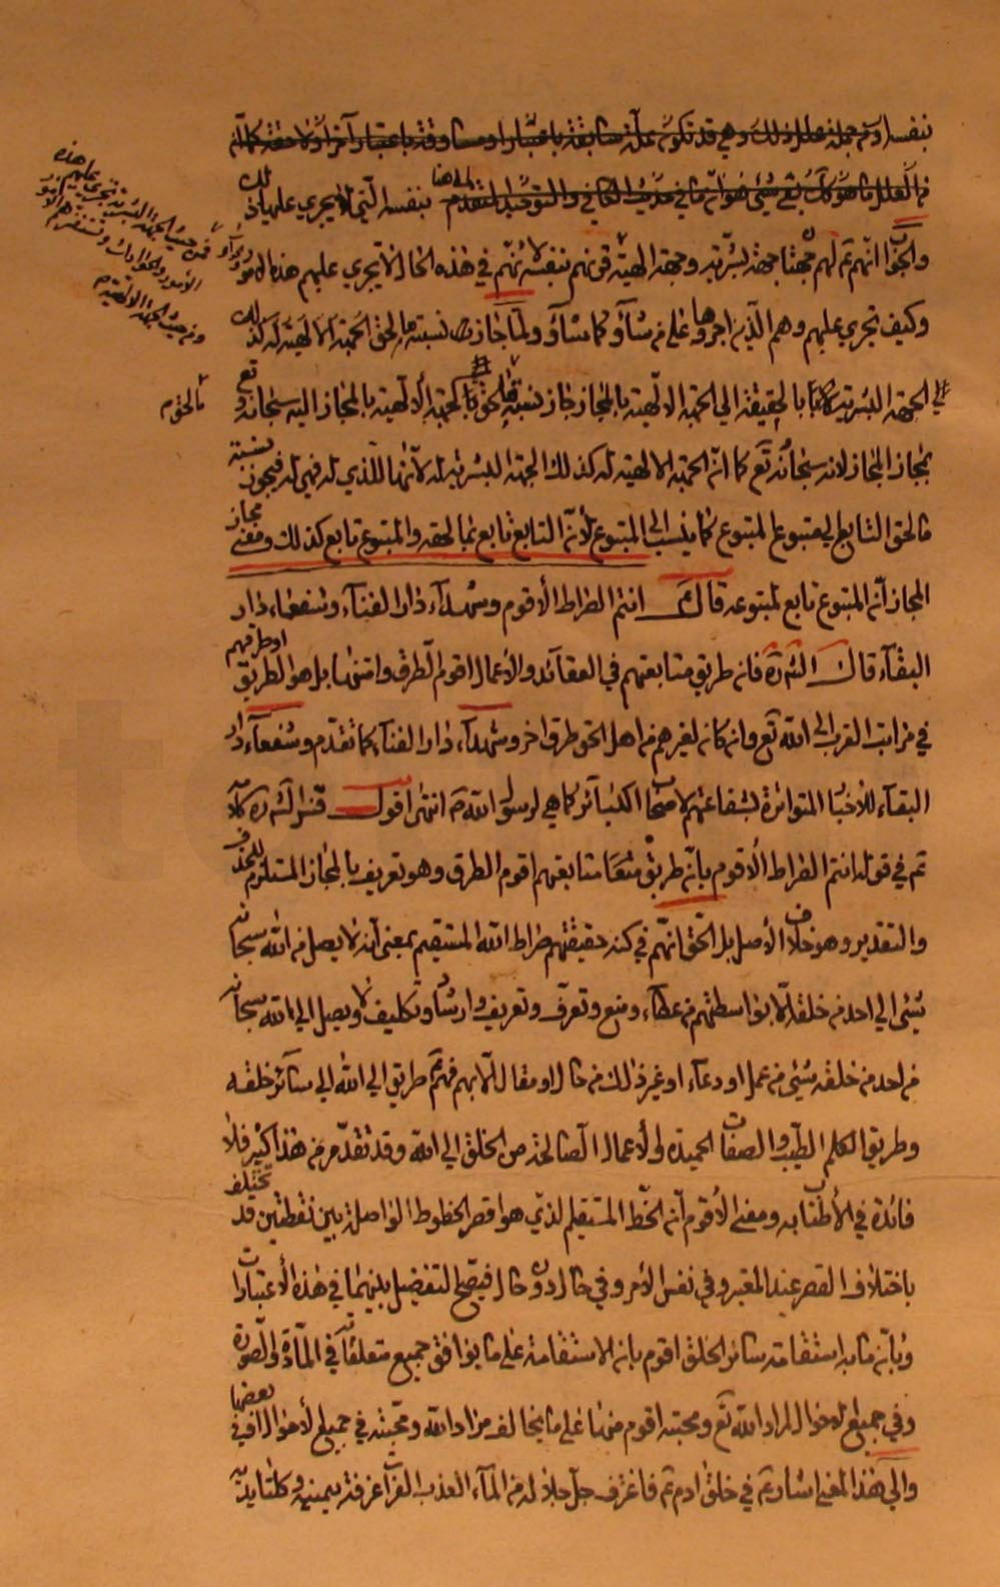 بنفسها ومن جملة علل ذلك وهي قد تكون علة سابقة باعتبار ومساوقة باعتبار آخر ولاحقة كما انّه
من العلل ما هو كك بقى شيء هو انه ما في حديث الكافي والتوحيد المتقدم الى هنا بنفسه الّتي لا يجري عليها ذلك
والجواب انهم ع لهم جهتان جهة بشرية وجهة الهيّة فمنهم بنفسه لأنهم في هذه الحال لا يجري عليهم هذه الامور
وكيف تجري عليهم وهم الذين اجروها على من شاؤا كما شاؤا ولما جاز نسبة ما لحق الجهة الالهية له كذلك
الجهة البشرية بالحقيقة الى الجهة الالهية بالمجاز جاز نسبة ما لحق الجهة الالهية بالمجاز اليه سبحانه وتع
بمجاز المجاز لانه سبحانه تع كما انّ الجهة الالهية له كذلك الجهة البشرية له لأنها للذي له فهي له فيجوز نسبة
ما لحق التابع الى متبوع المتبوع كما ينسب الى المتبوع لأنّ التابع تابع بما لحقه والمتبوع تابع كذلك ومعنى مجاز
المجاز انّ المتبوع تابع لمتبوعه قال ع انتم الصراط الأقوم وشهداء دار الفناء وشفعاء دار
البقاء قال الش ره فان طريق متابعتهم في العقائد والاعمال اقوم الطرق وامتنها بل هو الطريق او طرقهم
في مراتب القرب الى الله تع وان كان لغيرهم من اهل الحق طرق اخر وشهداء دار الفناء كما تقدم وشفعاء دار
البقاء للأخبار المتواترة بشفاعتهم لاصحاب الكبائر كما هي لرسول الله ص انتهى اقول فسّر الش ره كلامه
ع في قوله انتم الصراط الأقوم بانّ طريق متابعتهم اقوم الطرق وهو تعريف بالمجاز المستلزم للحذف
والتقدير وهو خلاف الأصل بل الحق انهم في كنه حقيقتهم صراط الله المستقيم بمعنى انه لا يصل من الله سبحانه
شيء الى احد من خلقه الّا بواسطتهم من عطاء ومنع وتعرّف وتعريف وارشاد وتكليف ولا يصل الى الله سبحانه
من احد من خلقه شيء من عمل او دعاء او غير ذلك من حال او مقال الّا بهم فهم ع طريق الى الله الى سائر خلقه
وطريق الكلم الطيب والصفات الحميدة والأعمال الصالحة من الخلق الى الله وقد تقدّم من هذا كثير فلا
فائدة في الأطناب به ومعنى الأقوم انّ الخط المستقيم الذي هو اقصر الخطوط الواصلة بين نقطتين قد تختلف
باختلاف القصر عند المعتبر وفي نفس الأمر وفي حال دون حال فيصح التفضيل بينهما في هذه الأعتبارات
وبانّ ما به استقامة سائر الخلق اقوم بان الاستقامة على ما يوافق جميع متعلقاته في المادّة والصّورة
وفي جميع الاحوال لمراد الله تع ومحبته اقوم منها على ما يخالف مراد الله ومحبته في جميع الأحوال او في بعضها
والى هذا المعنى اشار ع في خلق ادم ع فاغترف جل جلاله من الماء العذب الفرات غرفة بيمينه وكلتا يديه